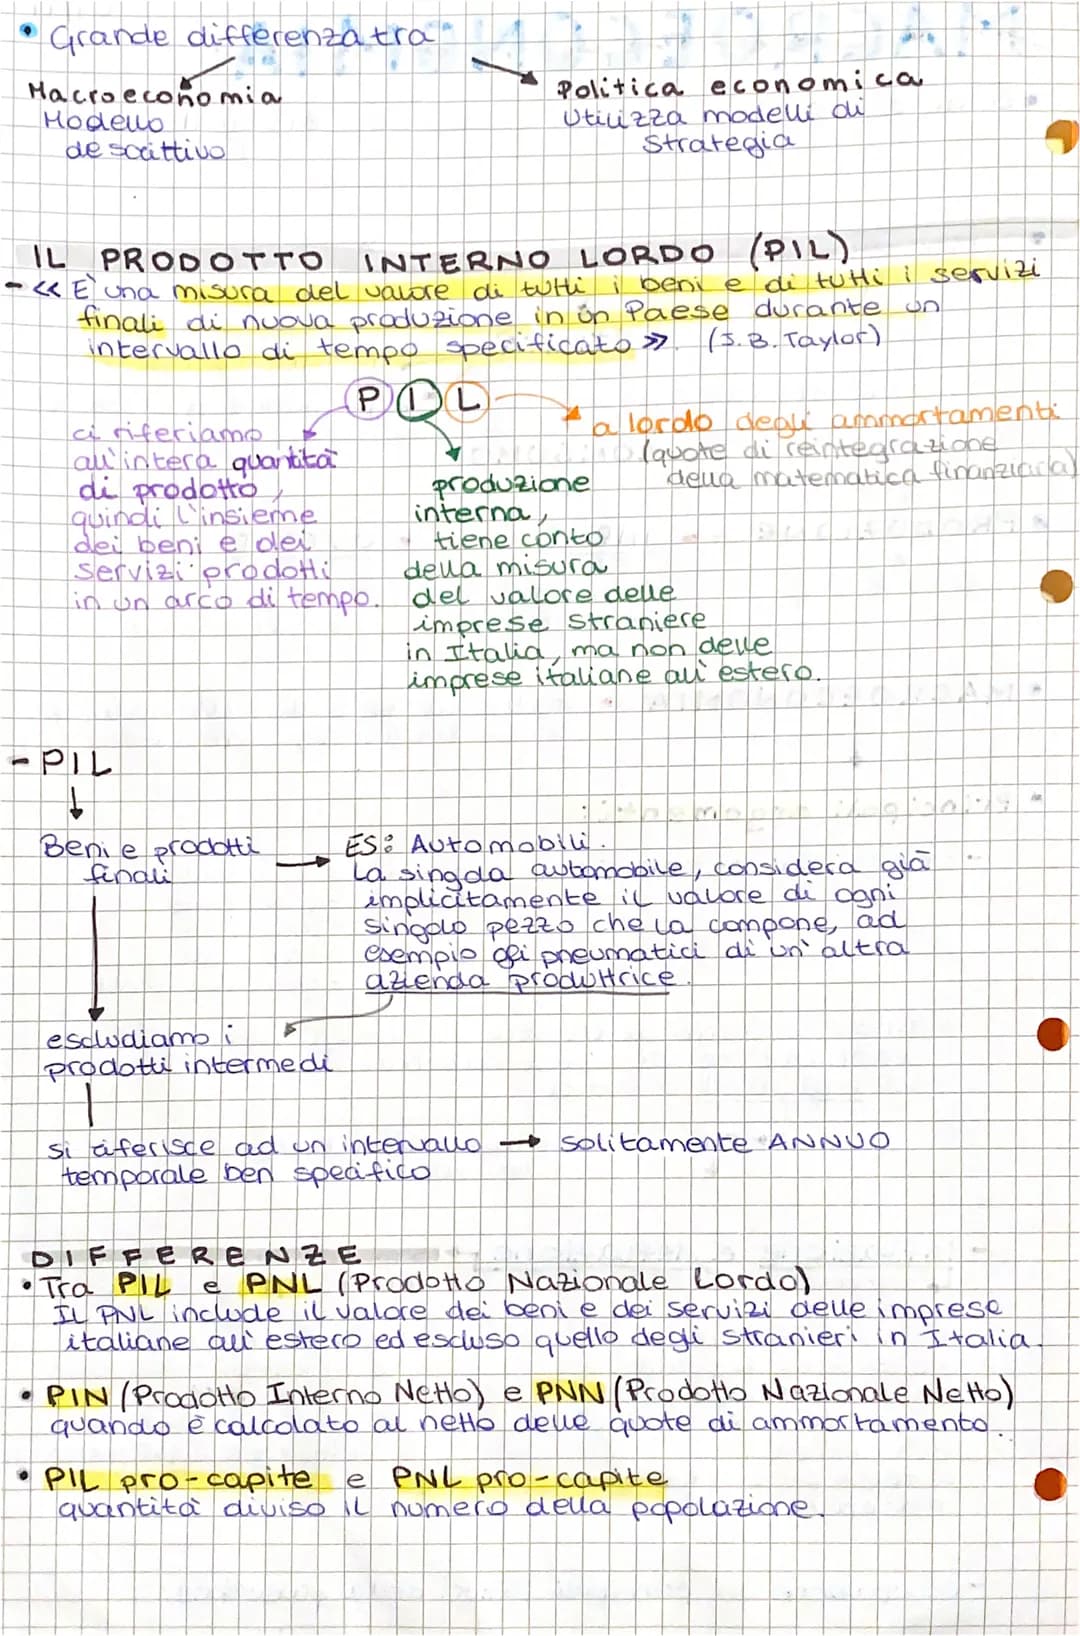 • Grande differenza tra
Macroeconomia
Modello
descrittivo
Politica economica
Utilizza modelli di
strategia
IL PRODOTTO INTERNO LORDO (PIL)
- << E' una misura del valore di tutti i beni e di tutti i servizi
finali di nuova produzione in un Paese durante un
intervallo di tempo specificato >>. (J.B. Taylor)
P I L
ci riferiamo
all'intera quantità
di prodotto,
quindi l'insieme
dei beni e dei
servizi prodotti
in un arco di tempo.
produzione
interna,
tiene conto
della misura
del valore delle
imprese straniere
in Italia, ma non delle
imprese italiane all'estero.
a lordo degli ammortamenti
(quote di reintegrazione
della matematica finanziaria)
- PIL
Beni e prodotti
finali
ES: Automobili.
La singola automobile, considera già
implicitamente il valore di ogni
singolo pezzo che la compone, ad
esempio gli pneumatici di un'altra
azienda produttrice.
escludiamo i
prodotti intermedi
si riferisce ad un intervallo → solitamente ANNUO
temporale ben specifico
DIFFERENZE
• Tra PIL e PNL (Prodotto Nazionale Lordo)
IL PNL include il valore dei beni e dei servizi delle imprese
italiane all'estero ed escluso quello degli stranieri in Italia.
• PIN (Prodotto Interno Netto) e PNN (Prodotto Nazionale Netto)
quando è calcolato al netto delle quote di ammortamento.
• PIL pro-capite e PNL pro-capite
quantità diviso il numero della popolazione.